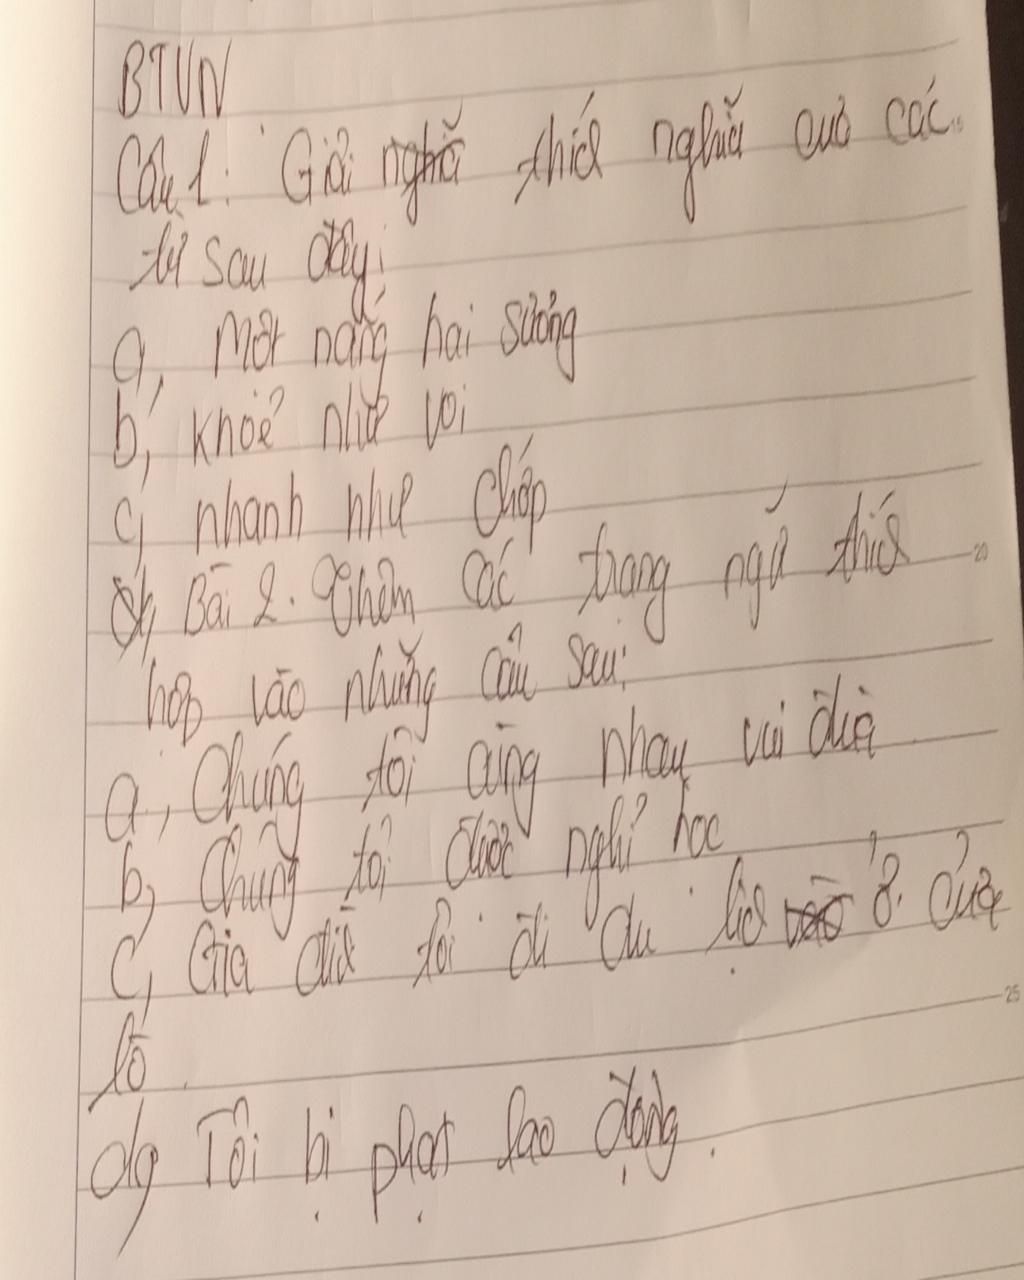 BTVN
Câu 1: Giải nghĩ thích nghĩa của các
từ sau đây:
a, Một nắng hai sương
b, khoẻ như voi
c, nhanh như chớp
Bài 2. Thêm các trạng ngữ thích
hợp vào những câu sau:
a, Chúng tôi cùng nhau vui đùa
b, Chúng tôi được nghỉ học
c, Gia đình tôi đi du lịch ở Cửa
lò.
d, Tôi bị phạt lao động.
20
25